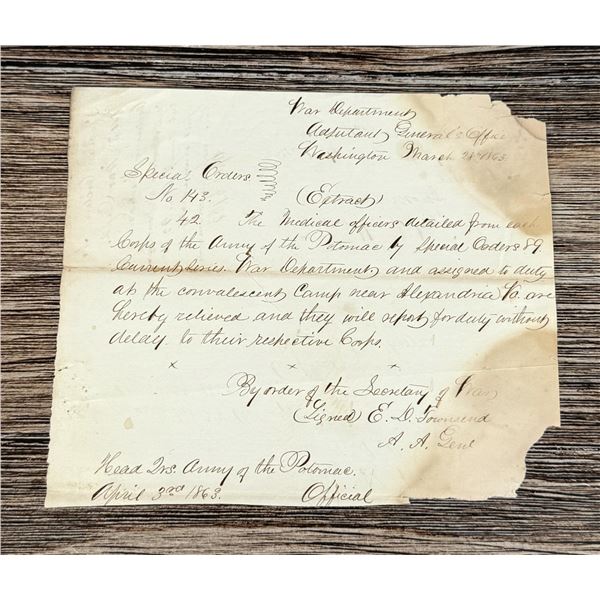 War Department
Adjutant General's Office
Washington March 28 1863
Special Orders
No 143.
(Extract)
42. The Medical officers detailed from each
Corps of the Army of the Potomac by Special Orders 89
Current series. War Department and assigned to duty
at the convalescent Camp near Alexandria Va. are
hereby relieved and they will report for duty without
delay to their respective Corps.
x x x
By order of the Secretary of War
(Signed E. D. Townsend
A. A. Genl
Head Qrs. Army of the Potomac.
April 3rd 1863. Official